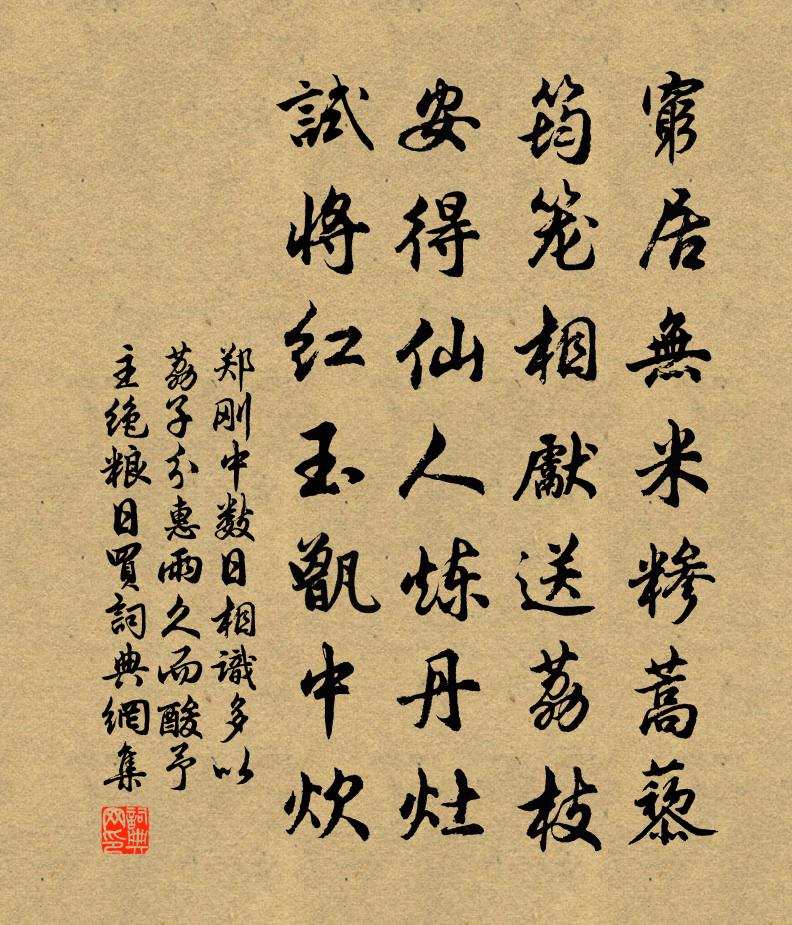 窮居無米糁蒿藜
筠笼相獻送荔枝
安得仙人炼丹灶
試将红玉甑中炊
郑刚中数日相識多以
荔子分惠雨久而酸予
主绝粮日買詞典網集
詞典网印